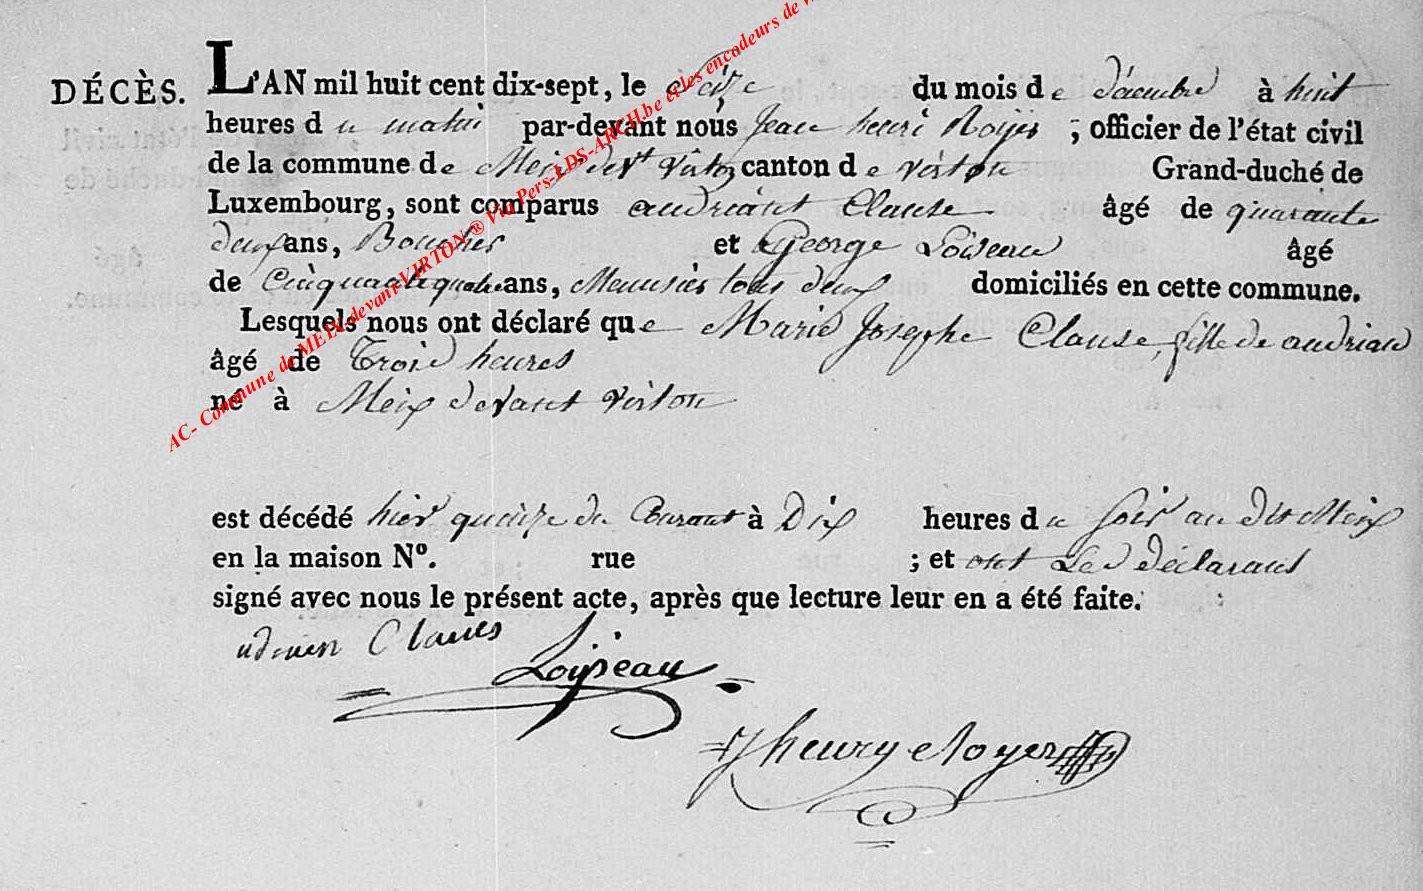 DÉCÈS. L'AN mil huit cent dix-sept, le Seize du mois de Décembre à huit
heures du matin par-devant nous Jean henri Royer ; officier de l'état civil
de la commune de Meix dev.t virton canton de virton Grand-duché de
Luxembourg, sont comparus audriant Clause âgé de quarante
deux ans, Boucher et George Loiseau âgé
de Cinquante quatre ans, Menusier tous deux domiciliés en cette commune.
Lesquels nous ont déclaré que Marie Josephe Clause, fille de audriand
âgé de Trois heures
né à Meix devant virton
est décédé hier quinze du Courant à Dix heures du soir au dit Meix
en la maison N°. rue ; et ont Les déclarans
signé avec nous le présent acte, après que lecture leur en a été faite.
Claues
Loiseau
Jhenry Royer
AC- Commune de MEIX-devant-VIRTON ® Via Pers-LDS-ARCH.be et les encodeurs de